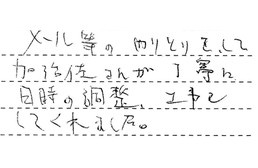 メール等のやりとりをして
加治佐さんが丁寧に
日時の調整、工事を
してくれました。